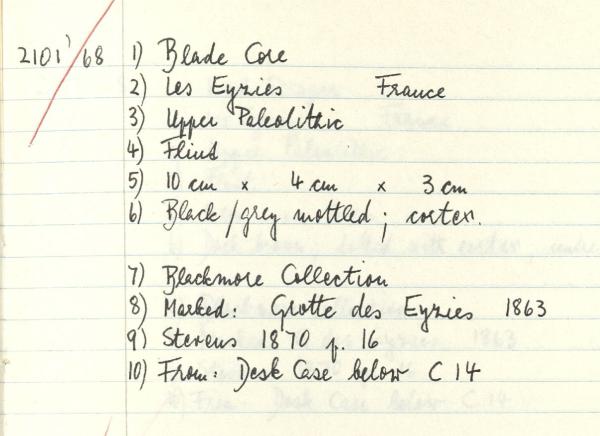 2101'/68 1) Blade Core
2) Les Eyzies France
3) Upper Paleolithic
4) Flint
5) 10 cm x 4 cm x 3 cm
6) Black/grey mottled; cortex.
7) Blackmore Collection
8) Marked: Grotte des Eyzies 1863
9) Stevens 1870 p. 16
10) From: Desk Case below C 14